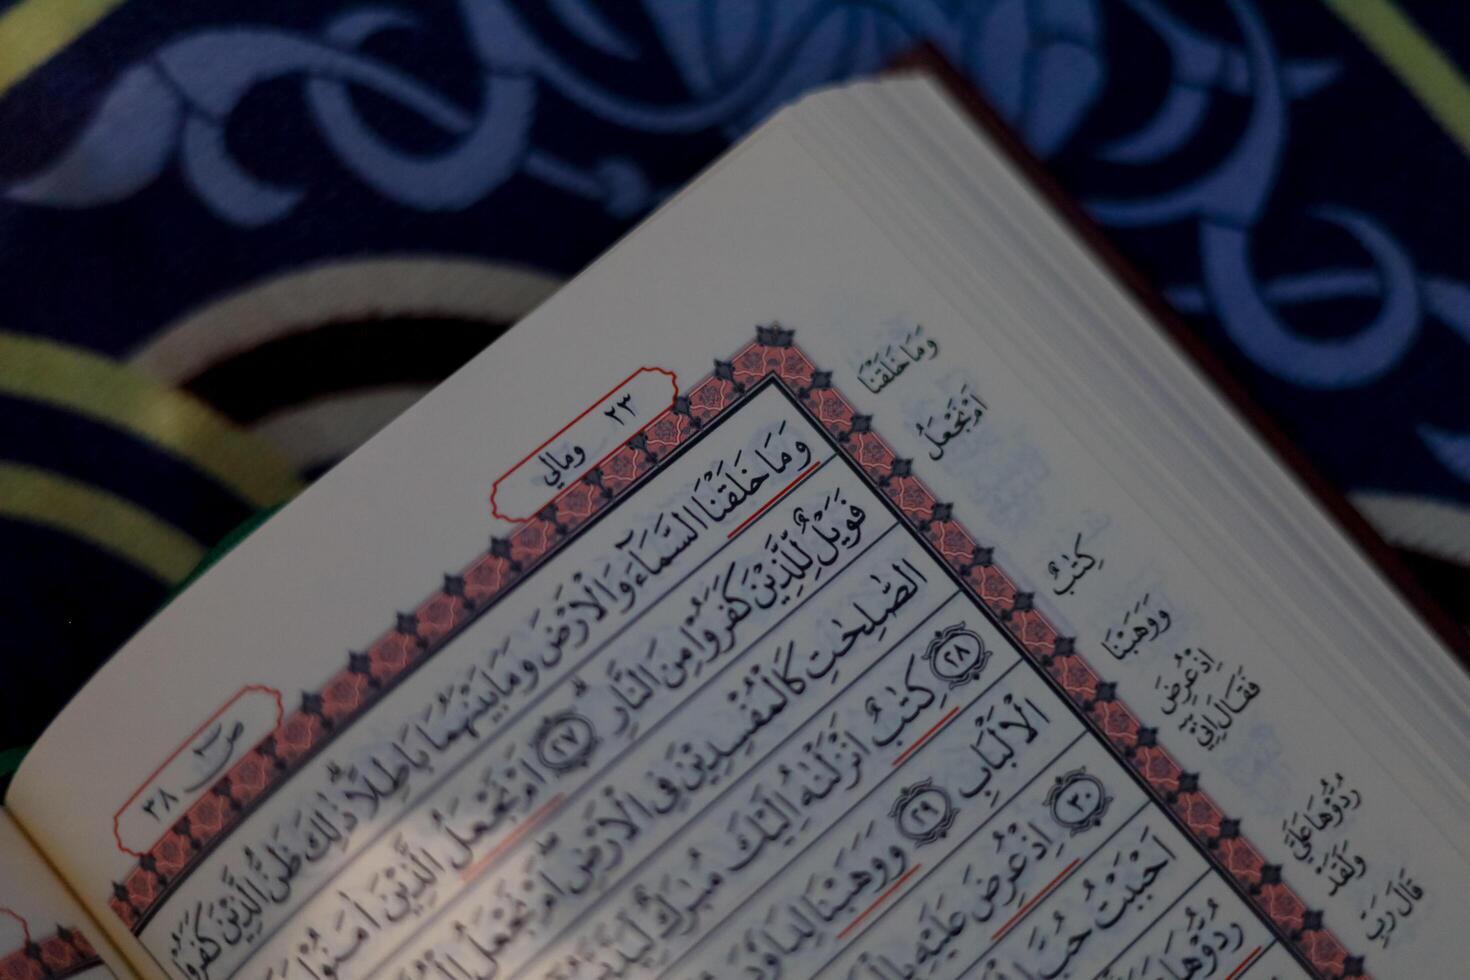 ٢٣ ومالي
صٓ ٣٨
وَمَا خَلَقْنَا السَّمَآءَ وَالْاَرْضَ وَمَا بَيْنَهُمَا بَاطِلًا ذٰلِكَ ظَنُّ الَّذِيْنَ كَفَرُوْا
فَوَيْلٌ لِّلَّذِيْنَ كَفَرُوْا مِنَ النَّارِ ٢٧ اَمْ نَجْعَلُ الَّذِيْنَ اٰمَنُوْا
الصّٰلِحٰتِ كَالْمُفْسِدِيْنَ فِى الْاَرْضِ اَمْ نَجْعَلُ
٢٨ كِتٰبٌ اَنْزَلْنٰهُ اِلَيْكَ مُبٰرَكٌ
الْاَلْبَابِ ٢٩ وَوَهَبْنَا لِدَاوٗدَ
٣٠ اِذْ عُرِضَ عَلَيْهِ
اَحْبَبْتُ حُبَّ
رُدُّوْهَا
وَمَا خَلَقْنَا
اَمْ نَجْعَلُ
كِتٰبٌ
وَوَهَبْنَا
اِذْ عُرِضَ
فَقَالَ اِنِّيْٓ
رُدُّوْهَا عَلَيَّ
وَلَقَدْ
قَالَ رَبِّ